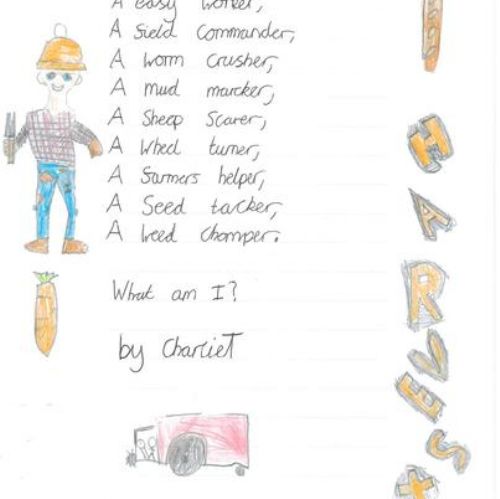 A easy worker,
A field Commander,
A worm crusher,
A mud marcker,
A Sheap Scarer,
A Wheel turner,
A farmers helper,
A Seed tacker,
A weed chomper.
What am I?
by CharlieT
HARVEST